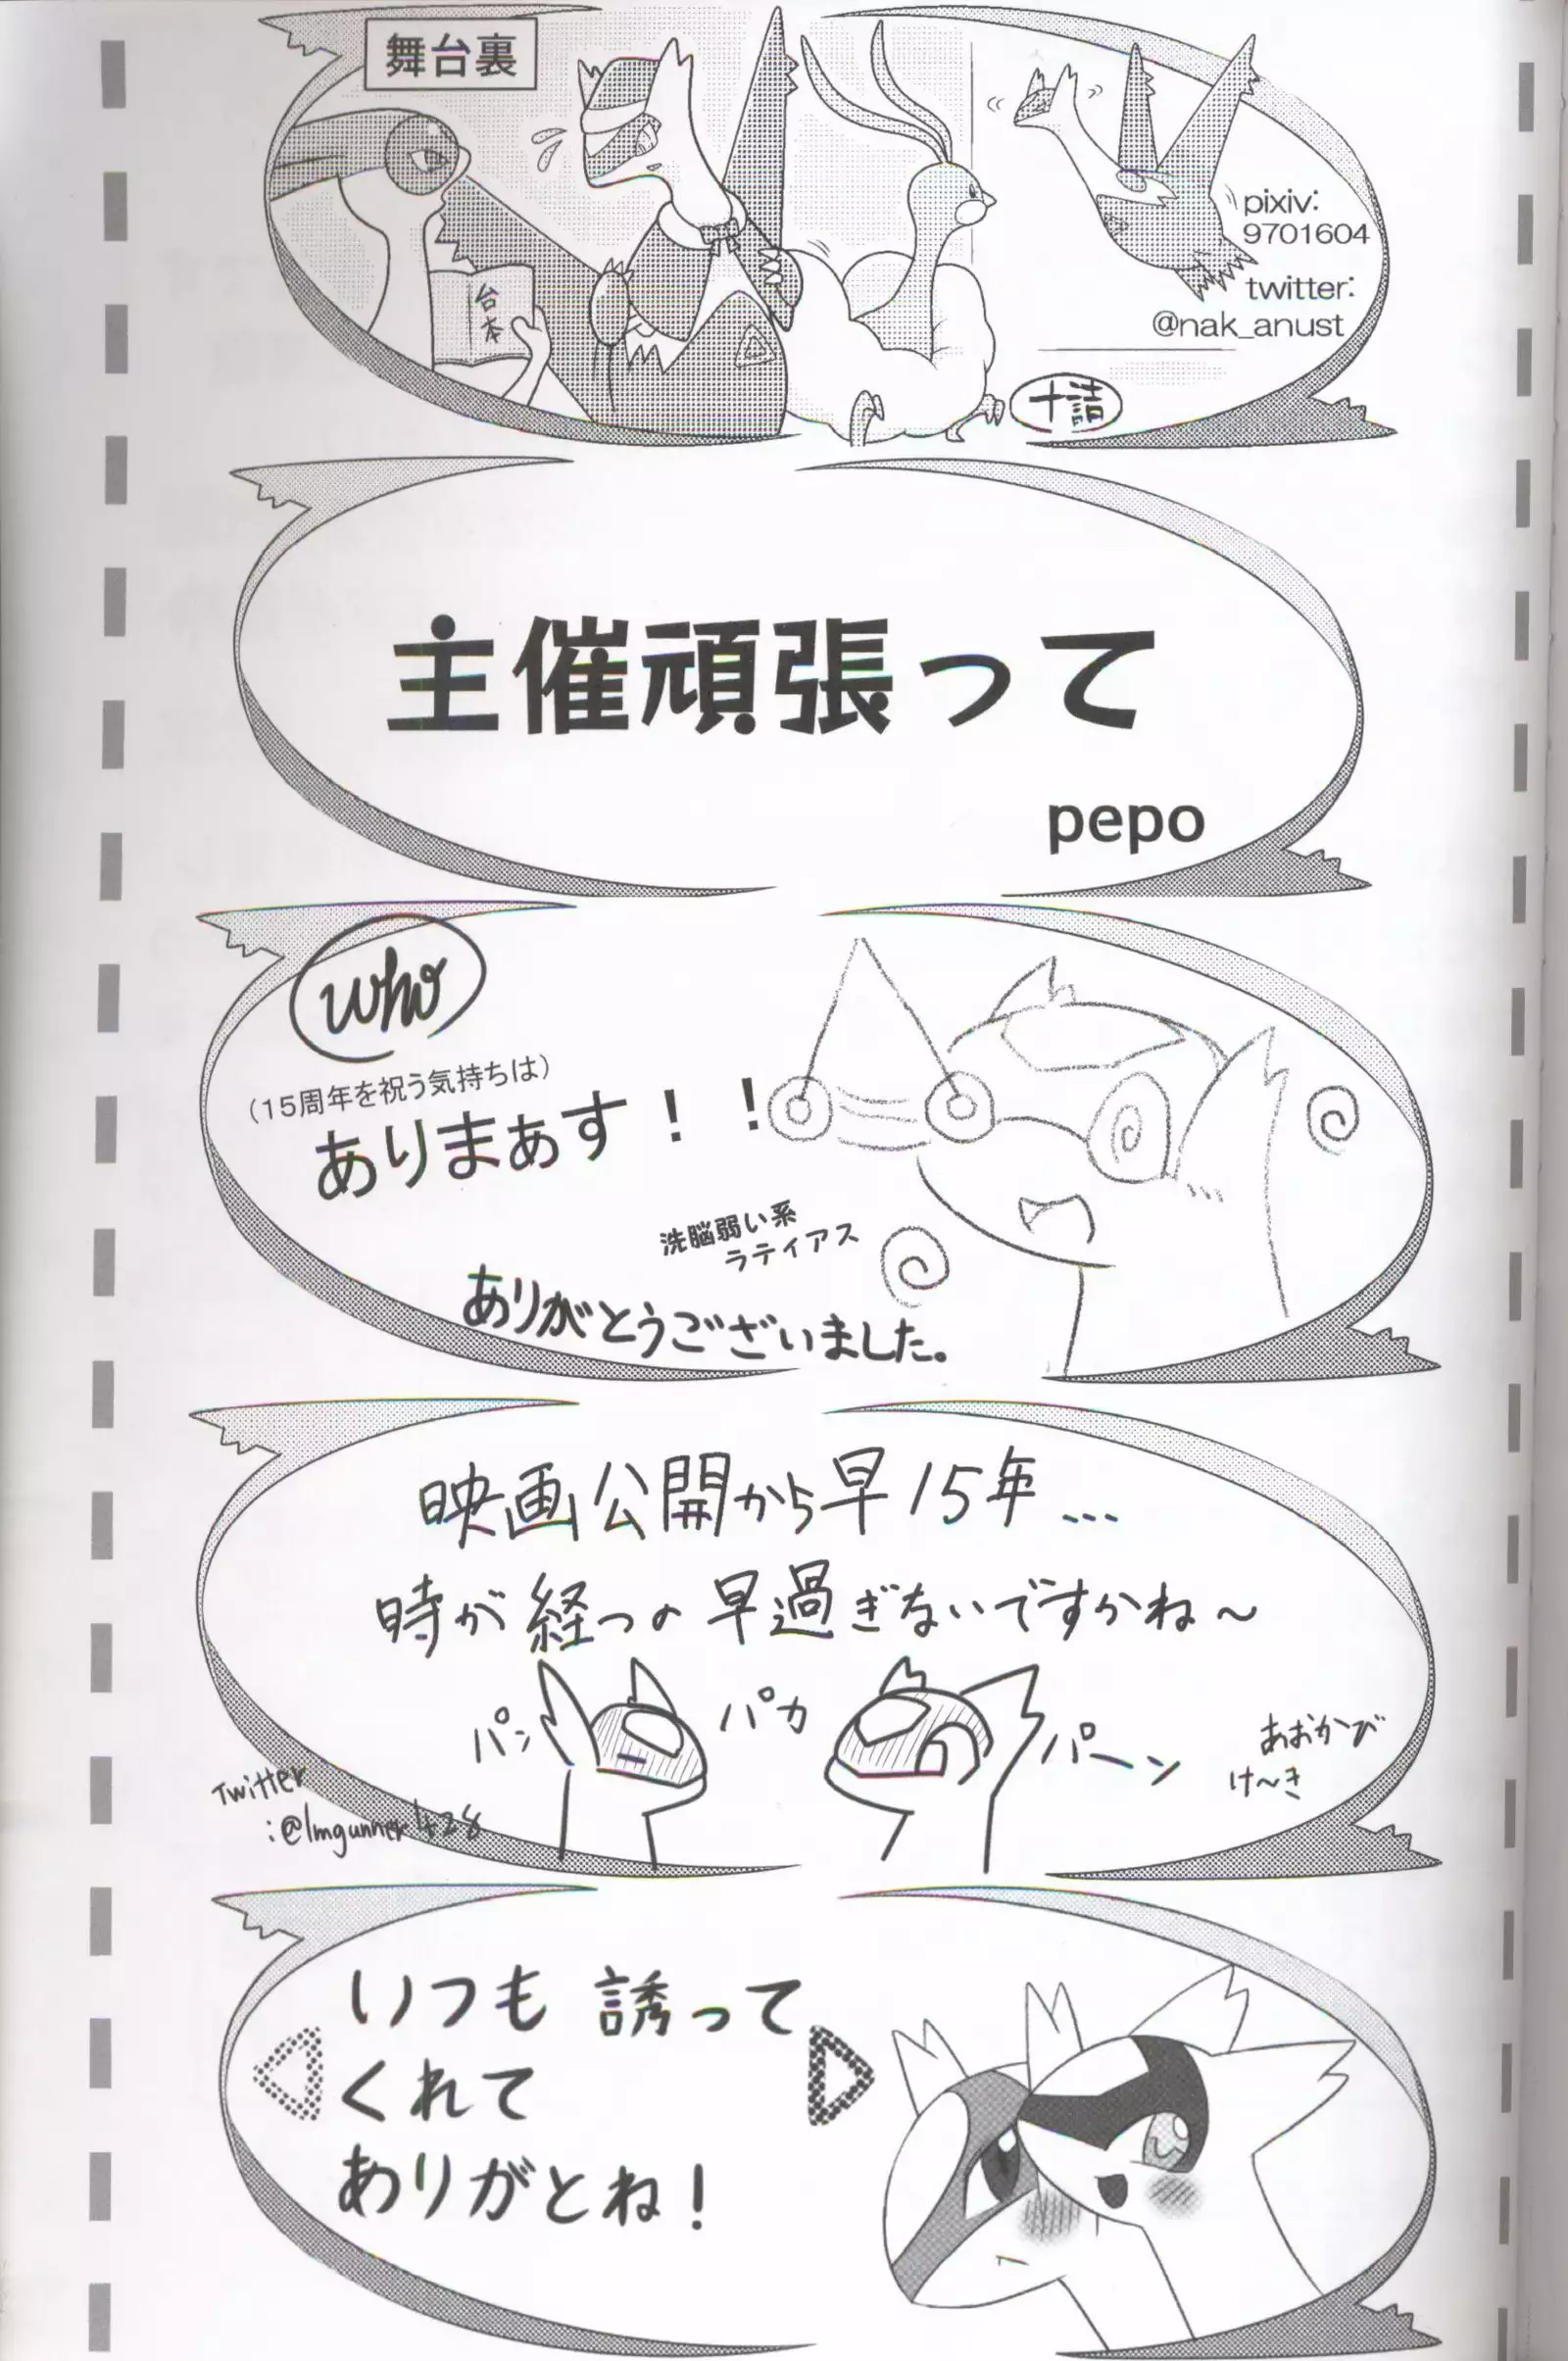 舞台裏
台本
pixiv:
9701604
twitter:
@nak_anust
十詰
主催頑張って
pepo
who
(15周年を祝う気持ちは)
ありまぁす！！
洗脳弱い系
ラティアス
ありがとうございました。
映画公開から早15年…
時が経つの早過ぎないですかね～
パン
パカ
パーン
あおかび
け～き
Twitter
:@lmgunner428
いつも誘って
くれて
ありがとね！